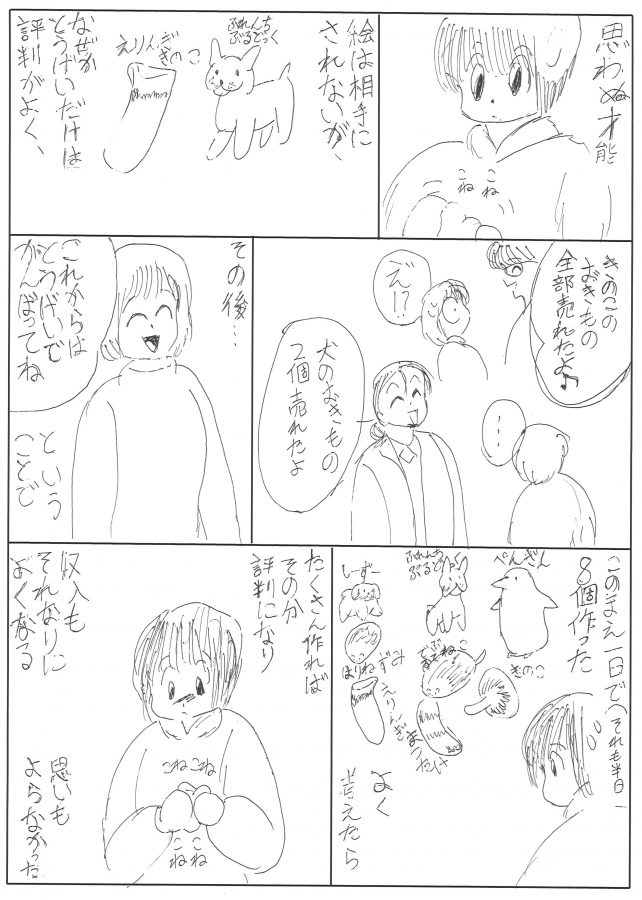 思わぬ才能
こね
こね
絵は相手に
されないが、
ふれんち
ぶるどっく
えりんぎ
きのこ
なぜか
とうげいだけは
評判がよく、
きのこの
おきもの
全部売れたよ♪
え!?
…
犬のおきもの
2個売れたよ
その後…
これからは
とうげいで
がんばってね
という
ことで
このまえ一日で(それも半日)
8個作った
ぺんぎん
ふれんち
ぶるどっ
しーずー
きのこ
でぶねこ
はりねずみ
えりんぎ
まつたけ
よく
考えたら
たくさん作れば
その分
評判になり
収入も
それなりに
よくなる
こねこね
こね
こね
思いも
よらなかった